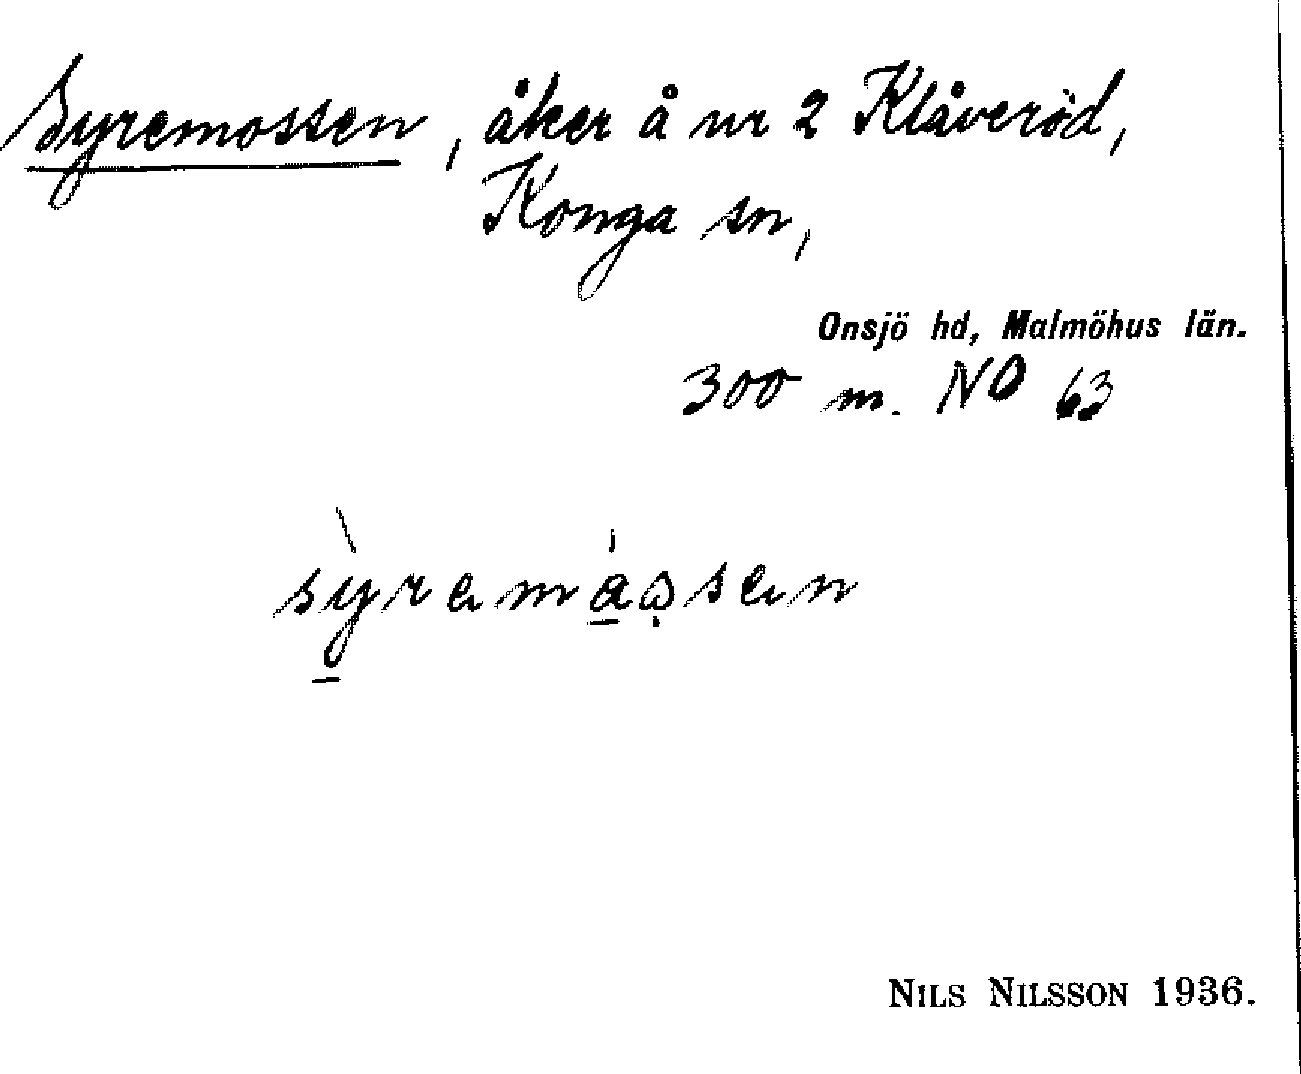 Syremossen, åker å nr 2 Klåveröd,
Konga sn,
Onsjö hd, Malmöhus län.
300 m. NO 63
sỳremåssen
NILS NILSSON 1936.